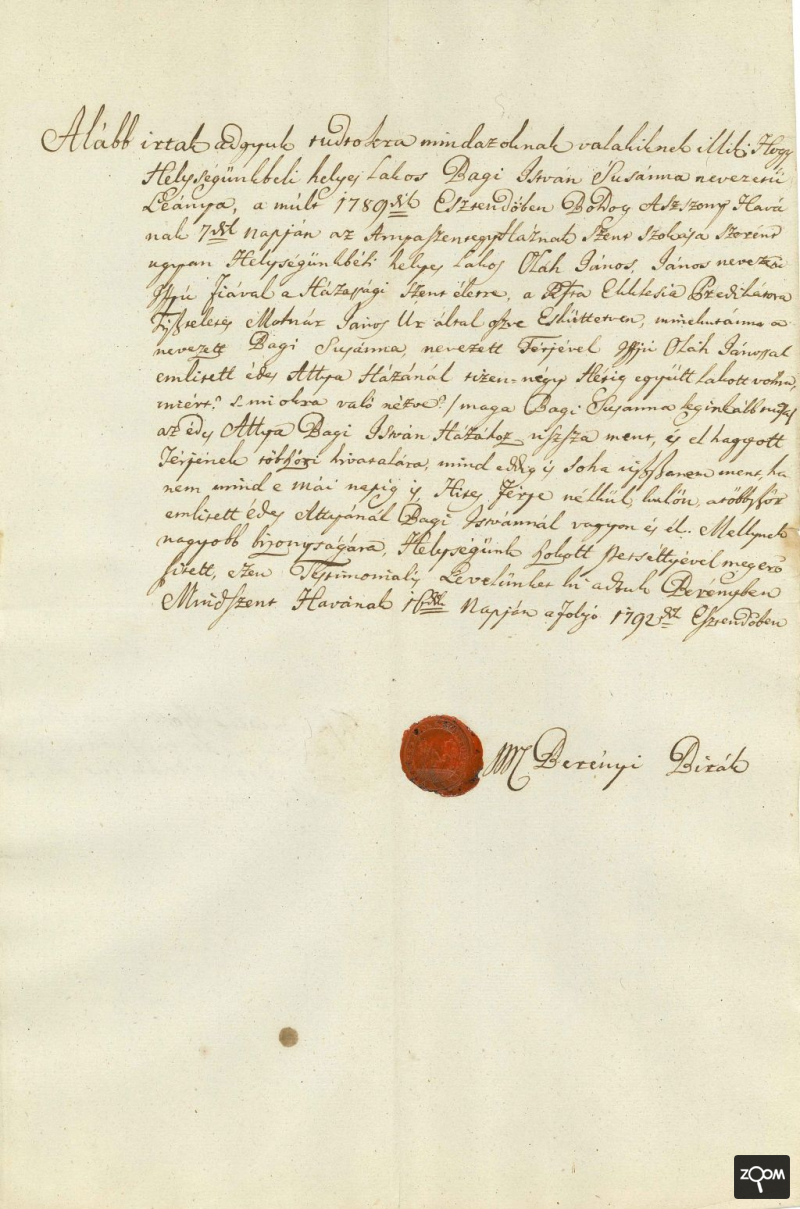 Alább irtak adgyuk tudtokra mindazoknak valakiknek illik; Hogy
Helységünkbéli helyes Lakos Bagi Istvan Susánna nevezetü
Leánya, a múlt 1789dik Esztendőben Bóldog Aszszony Havá
nak 7dik napján az Anyaszentegyháznak Szent Szokása szerént
ugyan Helységünkbéli helyes Lakos Oláh János, János nevezetü
Iffjú Fiával a Házassági Szent életre, a Rfta Ekklesia Predikátora
Tiszteletes Molnár János Ur által öszve Eskütteven, minekutánna a
nevezett Bagi Susánna, nevezett Férjével Iffjú Oláh Jánossal
emlitett édes Attya Házánál tizen-négy Hétig együtt lakott vólna,
miért? s mi okra való nézve? / maga Bagi Susanna leginkább tudja
az édes Attya Bagi István Házához viszsza ment, és el hagyott
Férjének többszöri hivatalára, mind eddig is soha viszsza nem ment, ha
nem mind e mái napig is, Hites Férje nélkül, külön, a többször
emlitett édes Attyánál Bagi Istvánnál vagyon és él. Mellynek
nagyobb bizonyságára, Helységünk szokott petséttyével megerő
sitett, ezen Testimonialis Levelünket ki adtuk Berényben
Mindszent Havának 16dik Napján a folyó 1792dik Esztendőben
Berényi Birák
ZOOM